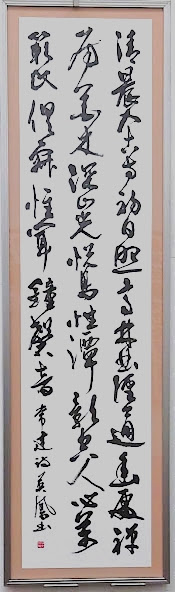 清晨入古寺初日照高林曲徑通幽處禪
房花木深山光悅鳥性潭影空人心萬
籟此俱寂惟聞鐘磬音常建詩鳳書